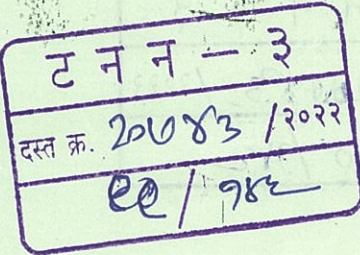 ट न न - ३
दस्त क्र. २०७४३ /२०२२
/ १४६